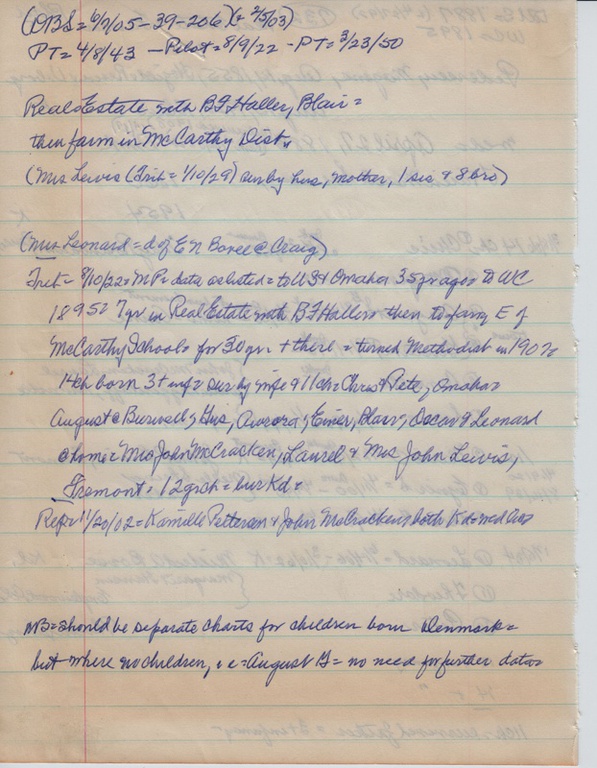 (OBS = 6/7/05-39-206) (+ 2/5/03)
PT = 4/8/43 — Pilot = 8/9/22 - PT = 3/23/50
Real Estate with BF Haller, Blair =
then farm in McCarthy Dist.
(Mrs Lewis (Trib = 1/10/29) sur by hus, mother, 1 sis & 8 bro)
(Mrs Leonard = d of E N @ Craig)
Trib = 8/10/22 = MP = data as listed = to US & Omaha 35 yr ago = to WC
1895 = 7 yr in Real Estate with BF Haller = then to farm E of
McCarthy Schools for 30 yr + there = turned Methodist in 1907 =
14ch born 3 + inf = sur by wife & 11ch = Chris & Pete, Omaha =
August @ Burwell, Gus, Aurora, Emer, Blair, Oscar & Leonard
@ home = Mrs John McCracken, Laurel & Mrs John Lewis,
Fremont = 12 grch = bur Kd =
Refr 11/20/02 = Kamille Petterson & John McCracken, both Kd = med
NB = should be separate charts for children born Denmark =
but where no children, i e = August G = no need for further data =